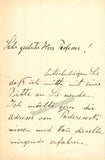 Sehr geehrter Herr Professor!
Entschuldigen Sie
daß ich mich mit einer
Bitte an Sie wende.
Ich möchte gern die
Adresse von Paderewski
wissen und kann dieselbe
nirgends erfahren.